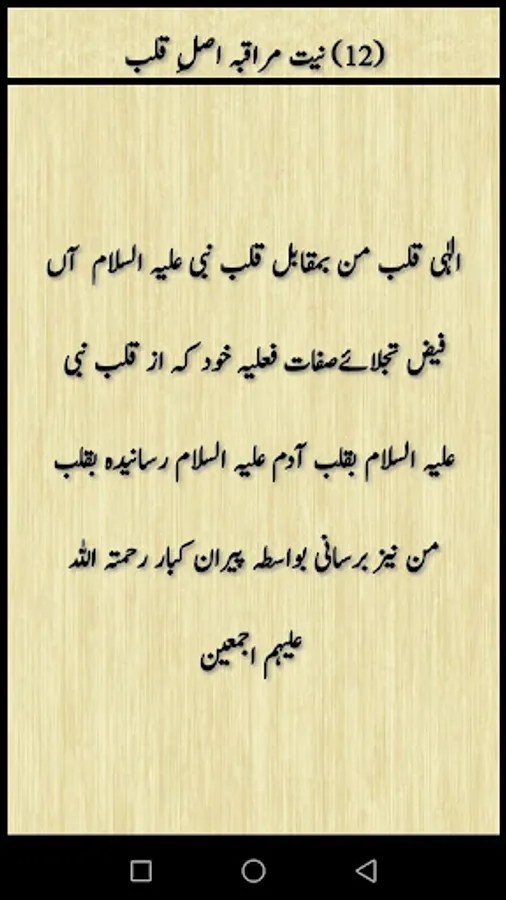 (12) نیت مراقبہ اصلِ قلب
الٰہی قلب من بمقابل قلب نبی علیہ السلام آں
فیض تجلائے صفات فعلیہ خود کہ از قلب نبی
علیہ السلام بقلب آدم علیہ السلام رسانیدہ بقلب
من نیز برسانی بواسطہ پیران کبار رحمتہ اللہ
علیہم اجمعین